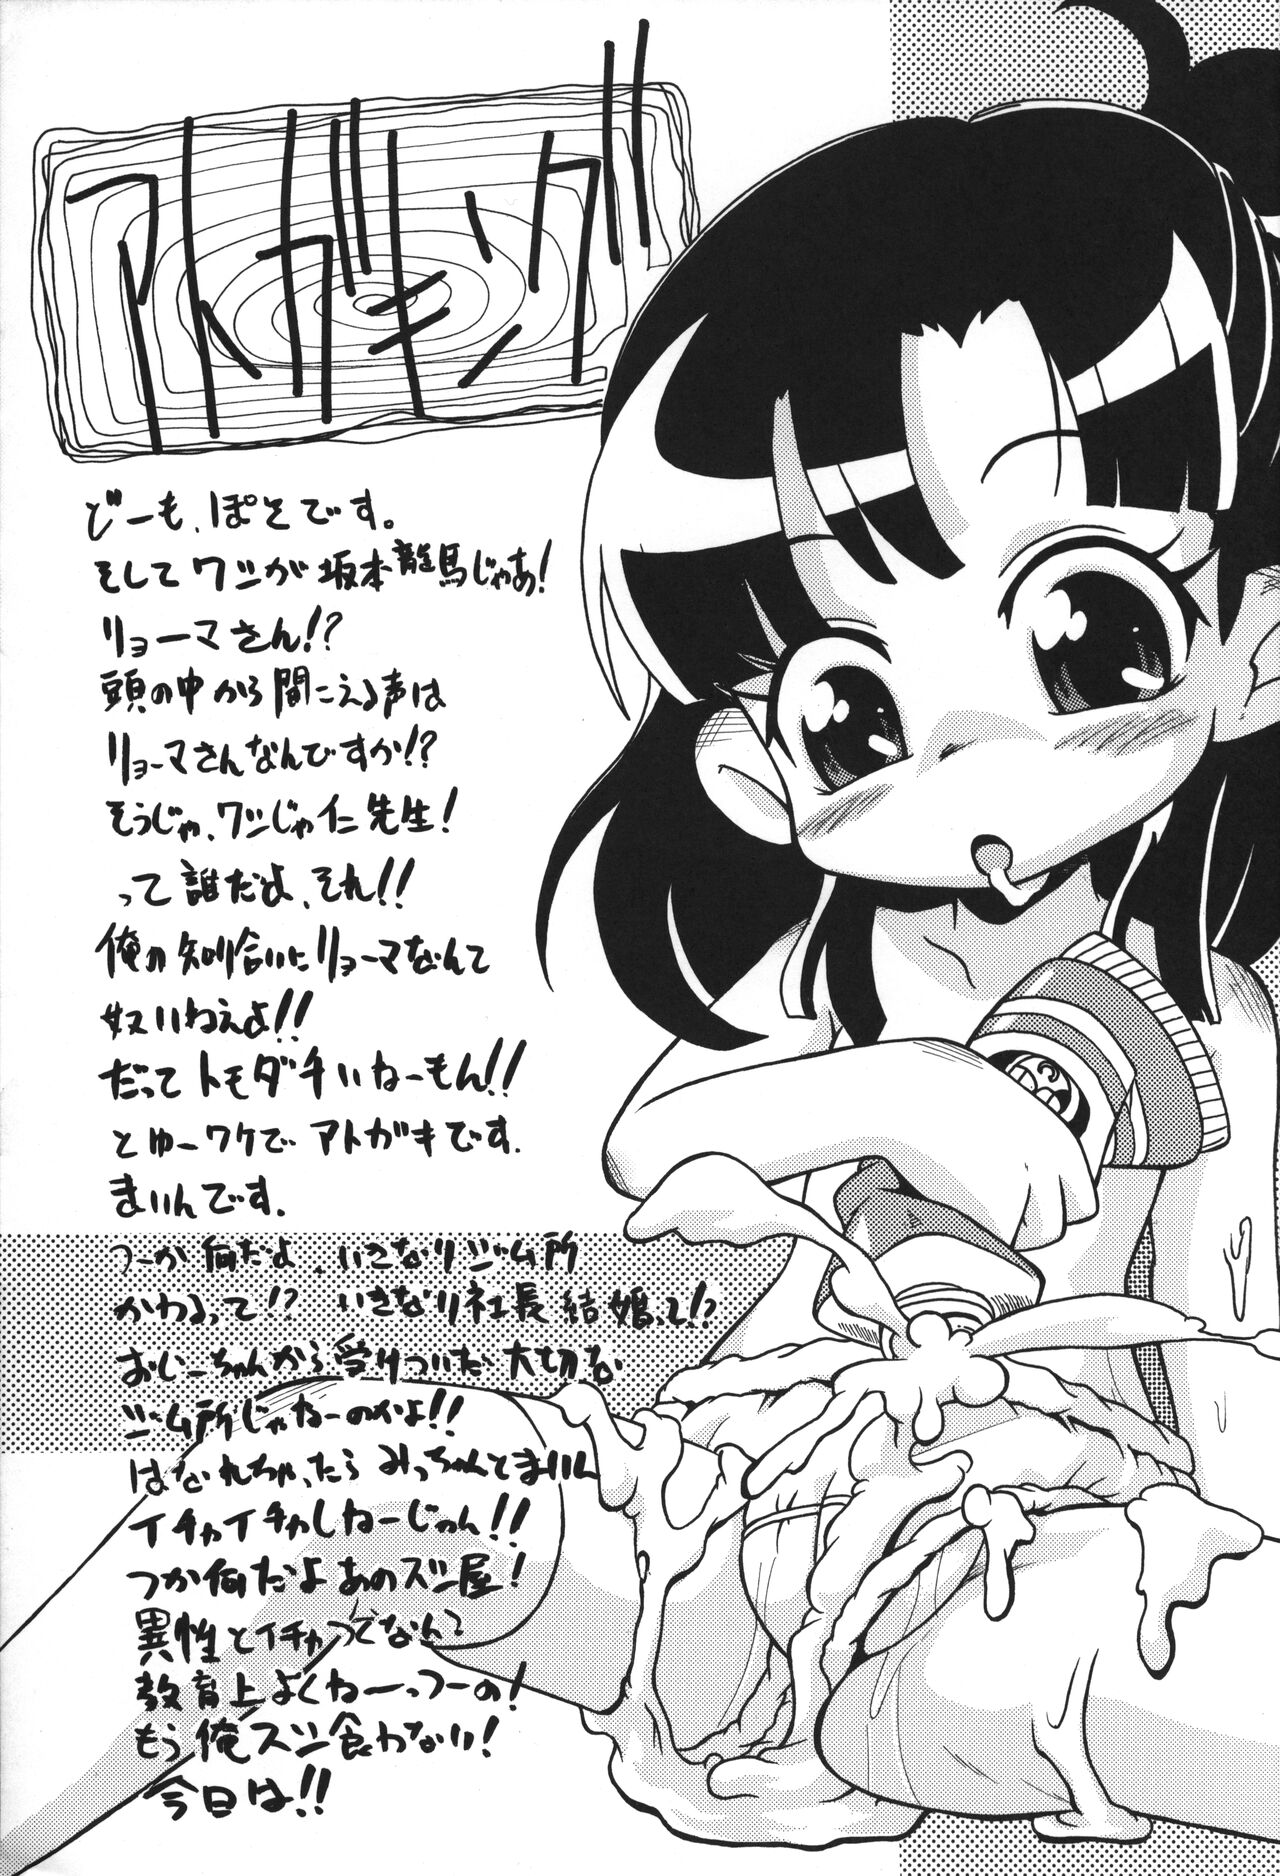 アトガキング!!
どーも、ぽそです。
そしてワシが坂本龍馬じゃあ!
リョーマさん!?
頭の中から聞こえる声は
リョーマさんなんですか!?
そうじゃ、ワシじゃ仁先生!
って誰だよ、それ!!
俺の知り合いにリョーマなんて
奴いねえよ!!
だってトモダチいねーもん!!
とゆーワケでアトガキです.
まいんです.
つーか何だよ、いきなりジム所
かわるって!? いきなり社長結婚って!?
おじーちゃんから受けついだ大切な
ジム所じゃねーのかよ!!
はなれちゃったらみっちゃんとまいん
イチャイチャしねーじゃん!!
つか何だよあのズシ屋!
異性とイチャつくなんて
教育上よくねーっつーの!
もう俺スシ食わない!
今日は!!